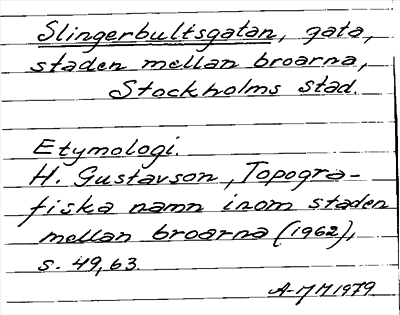 Slingerbultsgatan, gata,
staden mellan broarna,
Stockholms stad.
Etymologi.
H. Gustavson, Topogra-
fiska namn inom staden
mellan broarna (1962),
s. 49, 63.
A-MM 1979